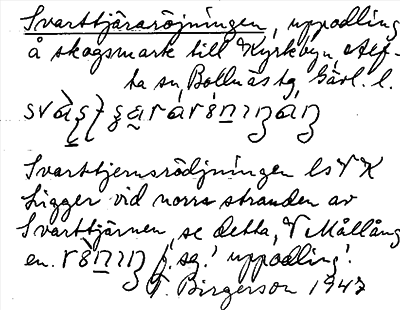 Svarttjärnsröjningen, uppodling
å skogsmark till Kyrkbyn, Alf-
ta sn, Bollnäs tg, Gävl. l.
Svarttjernsrödjningen ls V K
Ligger vid norra stranden av
Svarttjärnen, se detta, V Mållång
en. f. sg.! uppodling!
F. Birgerson 1947